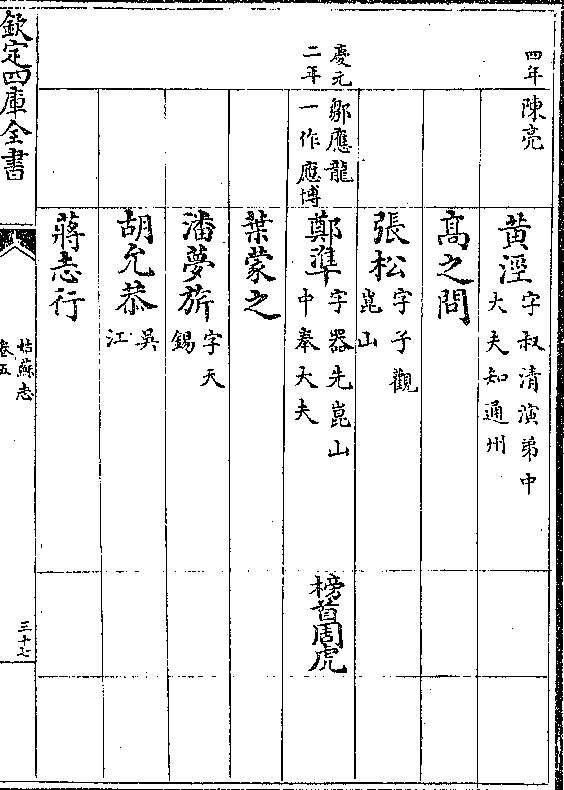 四年
陳亮
黃涇
字叔清演弟中
大夫知通州
髙之問
張松
字子觀
崑山
慶元
二年
鄒應龍
一作應博
鄭準
字器先崑山
中奉大夫
榜首周虎
葉蒙之
潘夢旂
字天
錫
胡允恭
吳
江
蔣志行
欽定四庫全書
姑蘇志
卷五
三十七